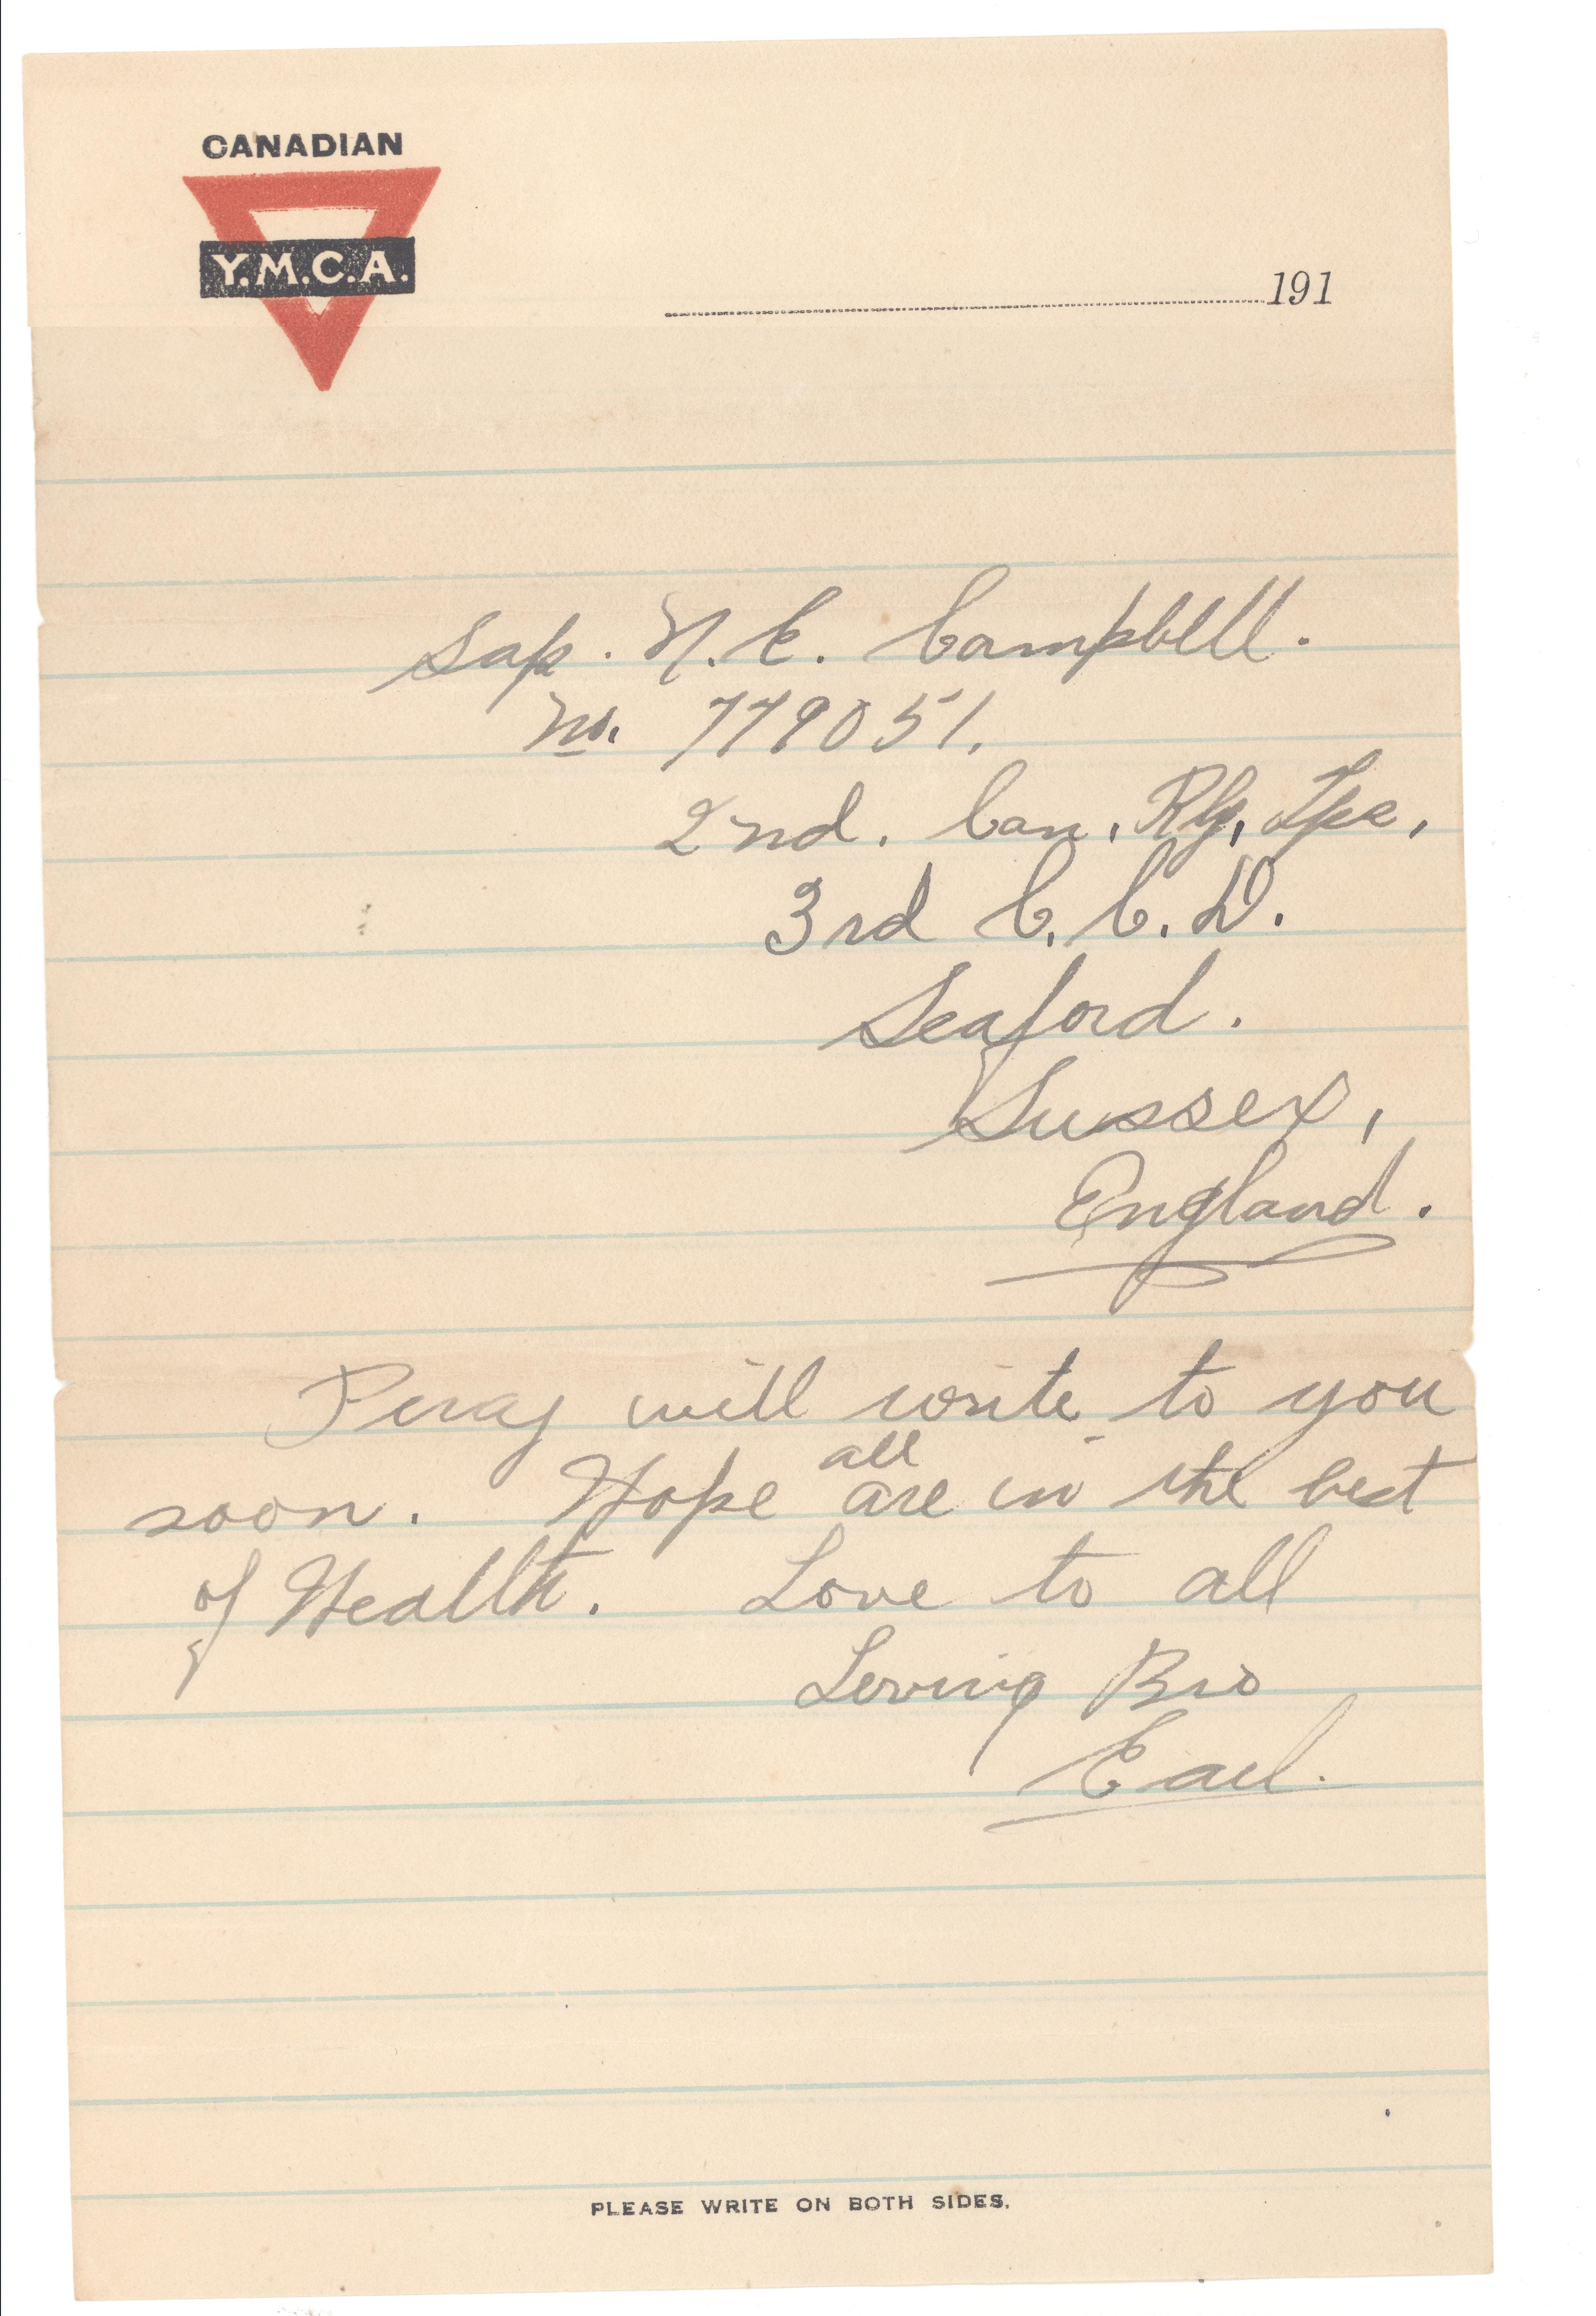 CANADIAN
Y.M.C.A.
191
Sap. N. E. Campbell.
No. 779051.
2nd. Can. Rly. Tps,
3rd C. C. D.
Seaford.
Sussex,
England.
Percy will write to you
all
soon. Hope are in the best
of Health. Love to all
Loving Bro
Earl.
PLEASE WRITE ON BOTH SIDES.